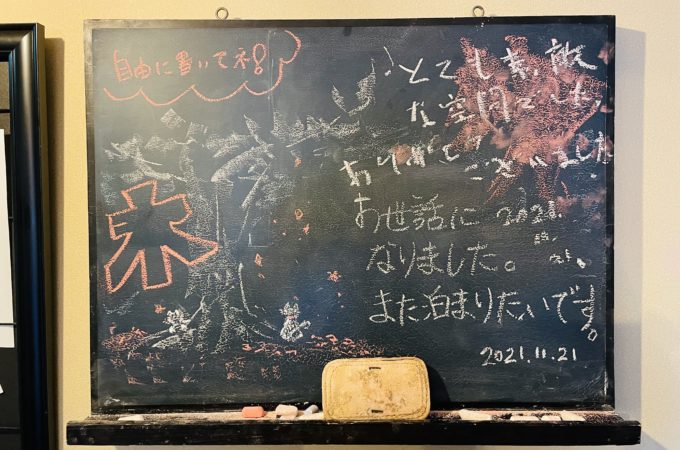 自由に置いてネ！
とても素敵
な空間でした。
ありがとう
ございました
お世話に
2021.
なりました。
また泊まりたいです。
2021.11.21